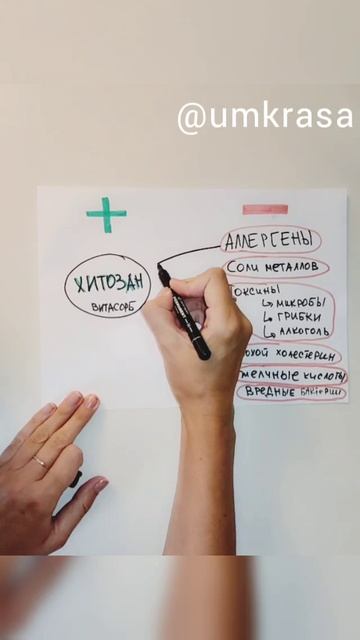 @umkrasa
+
−
ХИТОЗАН
ВИТАСОРБ
АЛЛЕРГЕНЫ
СОЛИ МЕТАЛЛОВ
ОКСИНЫ
↳ МИКРОБЫ
↳ ГРИБКИ
↳ АЛКОГОЛЬ
ОХОЙ ХОЛЕСТЕРИН
ЖЕЛЧНЫЕ КИСЛОТЫ
ВРЕДНЫЕ БАКТЕРИИ